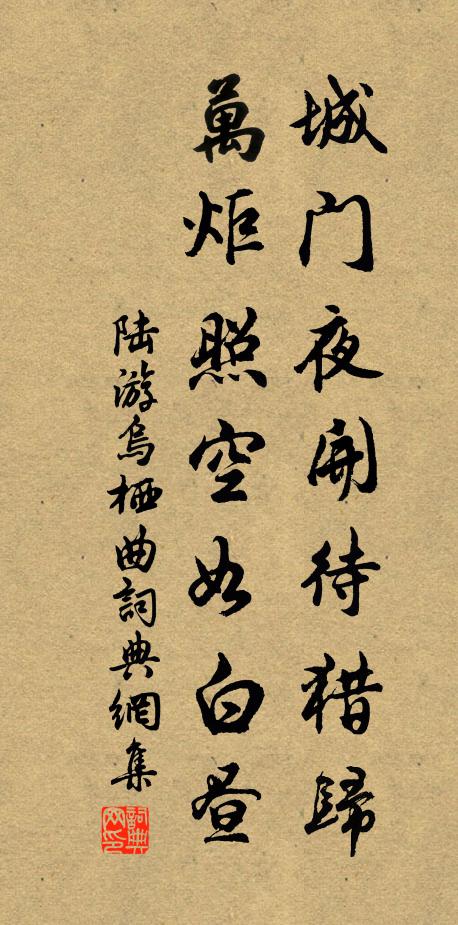 城门夜開待猎歸
萬炬照空如白昼
陆游烏栖曲詞典網集
詞典网印